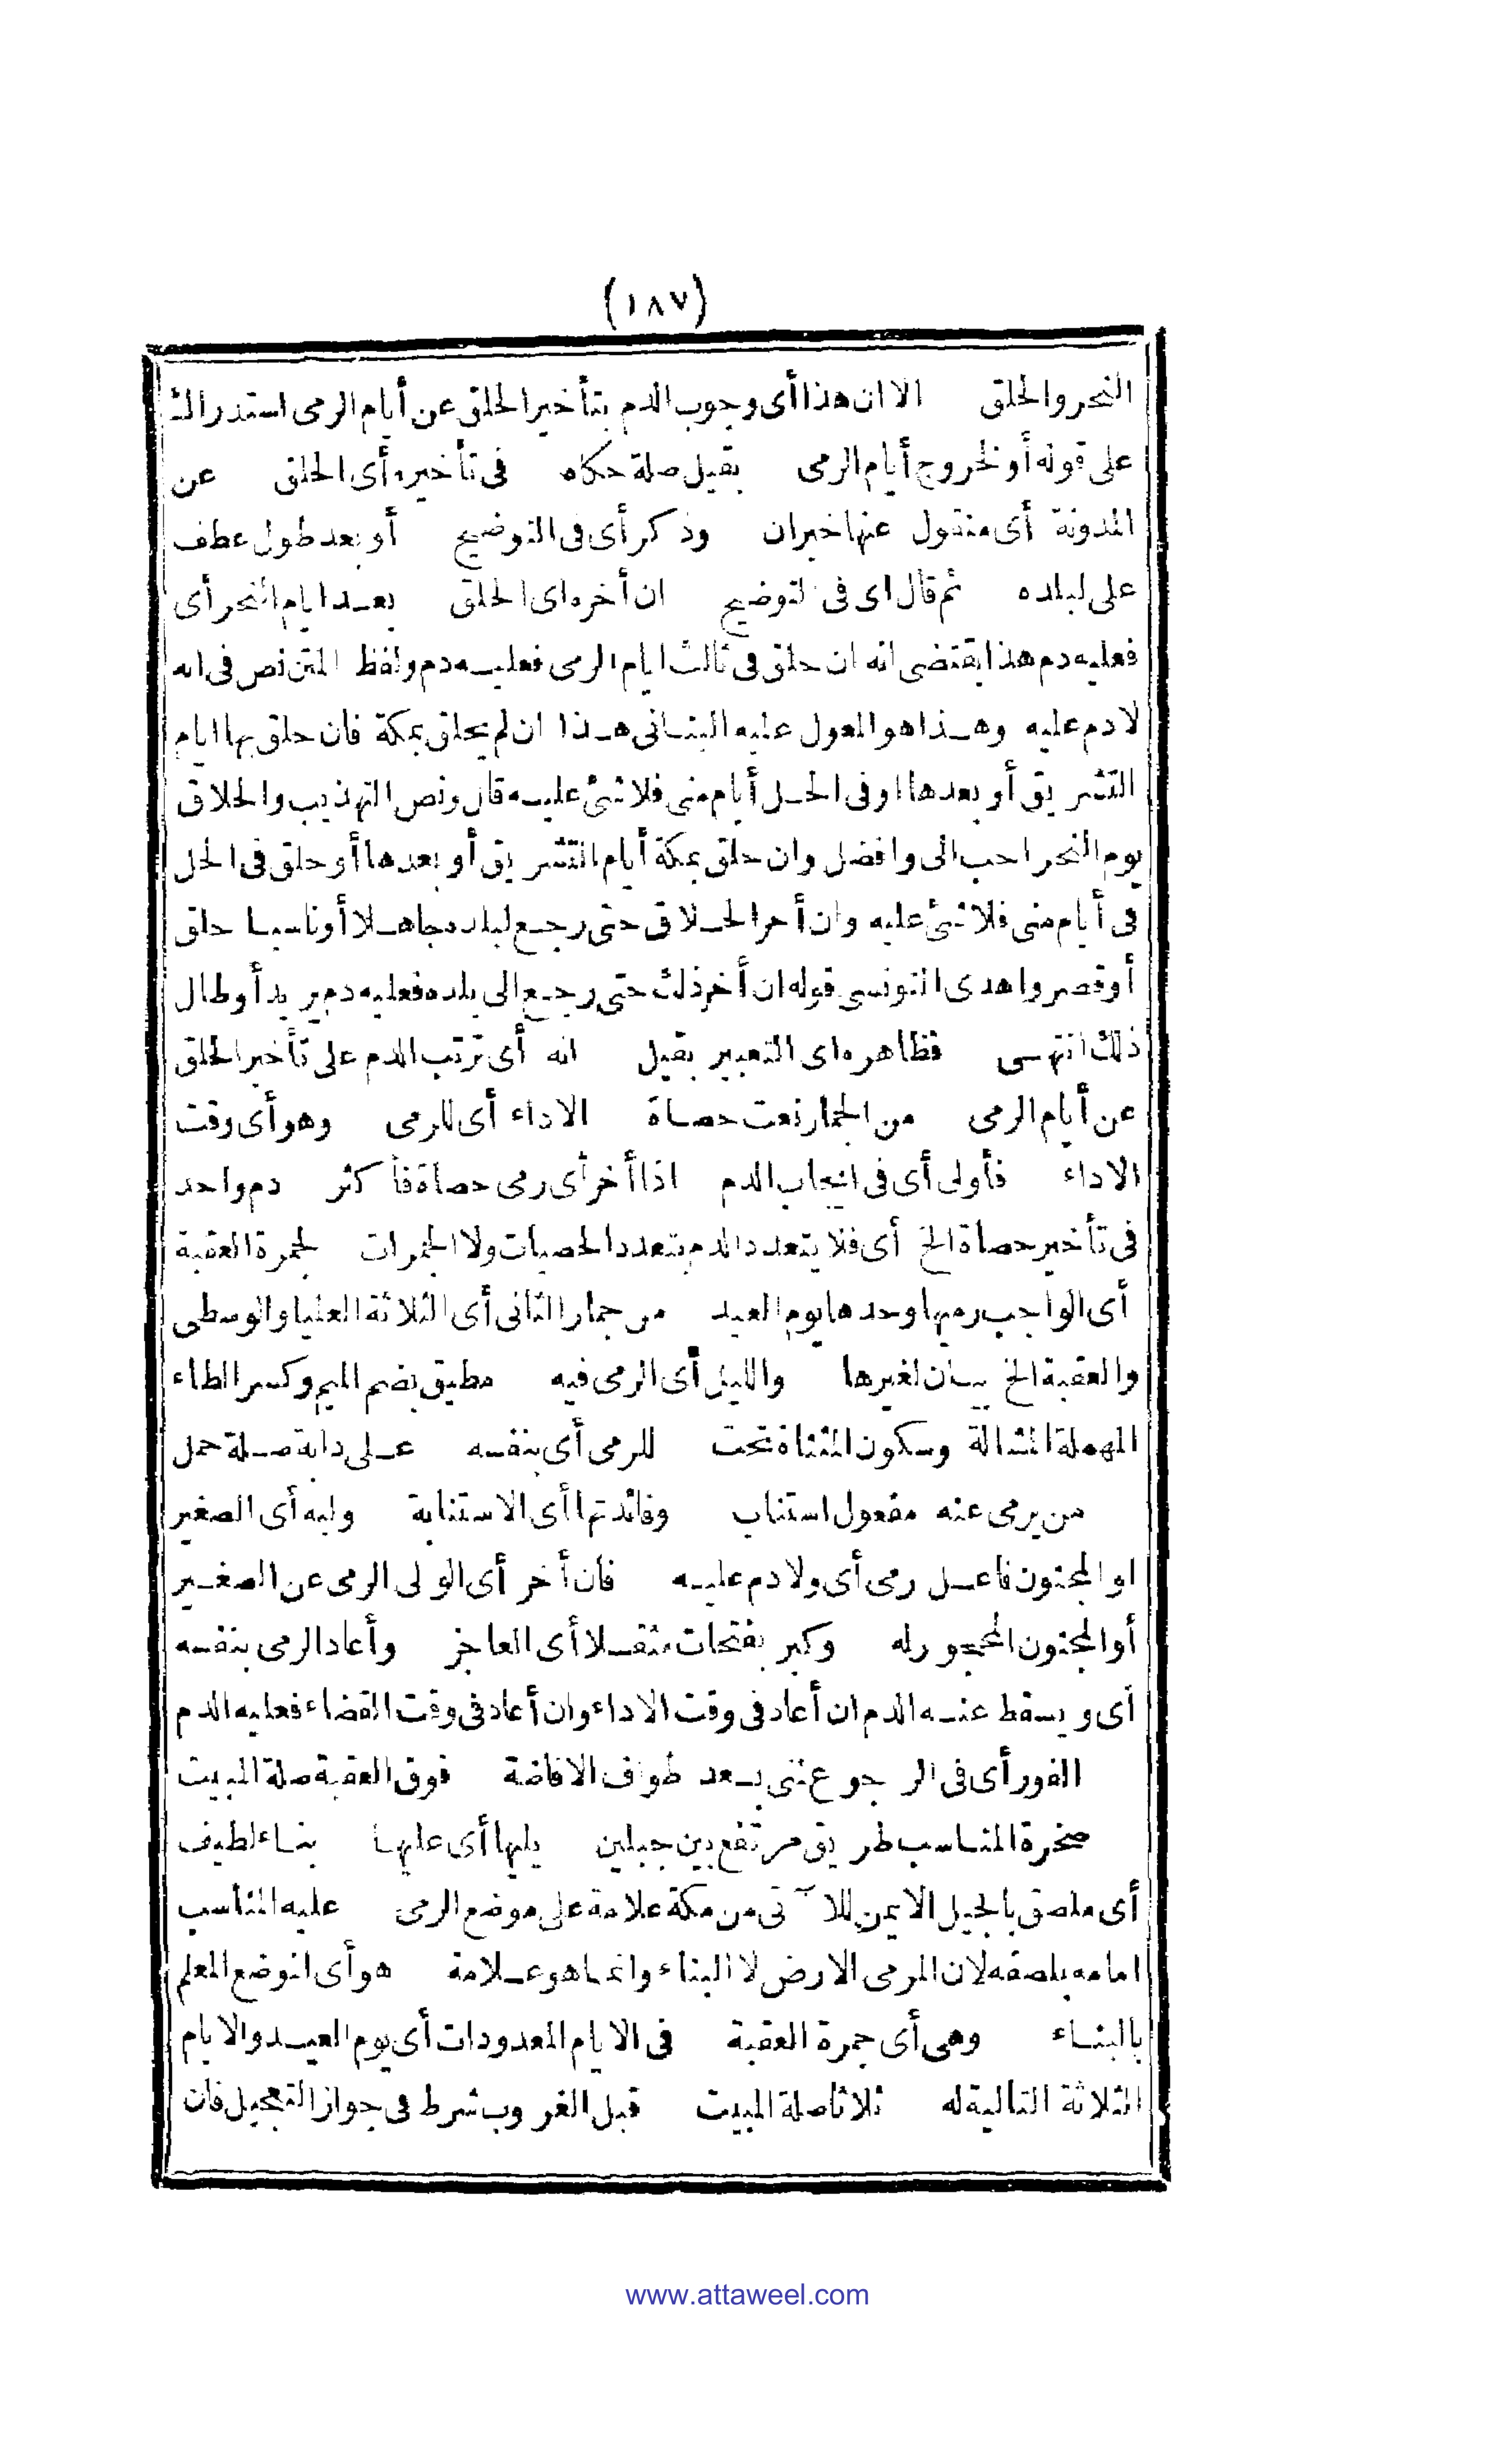 (١٨٧)
النحر والحلق الا ان هذا أى وجوب الدم بتأخير الحلق عن أيام الرمى استدراك
على قوله أو لخروج أيام الرمى بقيل صلة حكاه فى تأخيره أى الحلق عن
المدونة أى منقول عنها خبران وذكر أى فى التوضيح أو بعد طول عطف
على لبلده ثم قال اى فى التوضيح ان أخره اى الحلق بعد ايام النحر أى
فعليه دم هذا يقتضى انه ان حلق فى ثالث ايام الرمى فعليه دم ولفظ المتن نص فى انه
لا دم عليه وهذا هو المعول عليه البنانى هذا ان لم يحلق بمكة فان حلق بها ايام
التشريق أو بعدها او فى الحل أيام منى فلا شئ عليه قال ونص التهذيب والحلاق
يوم النحر احب الى وافضل وان حلق بمكة أيام التشريق أو بعدها أو حلق فى الحل
فى أيام منى فلا شئ عليه وان أخر الحلاق حتى رجع لبلده جاهلا أو ناسيا حلق
أو قصر واهدى التونسى قوله ان أخر ذلك حتى رجع الى بلده فعليه دم يريد أو طال
ذلك انتهى فظاهره اى التعبير بقيل انه أى ترتب الدم على تأخير الحلق
عن أيام الرمى من الجمار نعت حصاة الاداء أى للرمى وهو أى وقت
الاداء فأولى أى فى ايجاب الدم اذا أخر أى رمى حصاة فأكثر دم واحد
فى تأخير حصاة الخ أى فلا يتعدد الدم بتعدد الحصيات ولا الجمرات لجمرة العقبة
أى الواجب رميها وحدها يوم العيد من جمار الثانى أى الثلاثة العليا والوسطى
والعقبة الخ بيان لغيرها والليل أى الرمى فيه مطيق بضم الميم وكسر الطاء
المهملة المشالة وسكون المثناة تحت للرمى أى بنفسه على دابة صلة حمل
من يرمى عنه مفعول استناب وفائدتها أى الاستنابة وليه أى الصغير
او المجنون فاعل رمى أى ولا دم عليه فان أخر أى الولى الرمى عن الصغير
أو المجنون المحجور له وكبر بفتحات مثقلا أى العاجز وأعاد الرمى بنفسه
أى ويسقط عنه الدم ان أعاد فى وقت الاداء وان أعاد فى وقت القضاء فعليه الدم
الفور أى فى الرجوع لمنى بعد طواف الافاضة فوق العقبة صلة المبيت
صخرة المناسب طريق مرتفع بين جبلين يليها أى عليها بناء لطيف
أى ملصق بالجبل الايمن للآتى من مكة علامة على موضع الرمى عليه المناسب
امامه بلصقه لان المرمى الارض لا البناء وانما هو علامة هو أى الموضع المعلم
بالبناء وهى أى جمرة العقبة فى الايام المعدودات أى يوم العيد والايام
الثلاثة التالية له ثلاثا صلة المبيت قبل الغروب شرط فى جواز التعجيل فان
www.attaweel.com